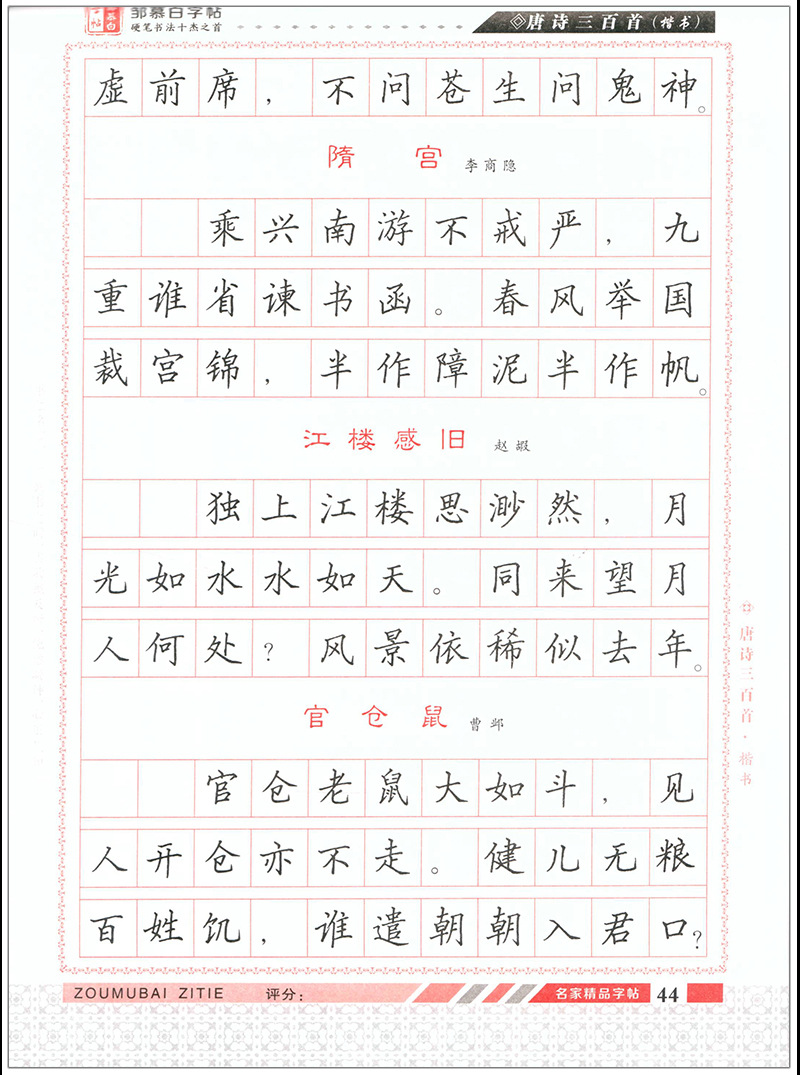 邹慕白字帖
硬笔书法十杰之首
唐诗三百首（楷书）
虚前席，不问苍生问鬼神。
隋宫 李商隐
乘兴南游不戒严，九
重谁省谏书函。春风举国
裁宫锦，半作障泥半作帆。
江楼感旧 赵嘏
独上江楼思渺然，月
光如水水如天。同来望月
人何处？风景依稀似去年。
官仓鼠 曹邺
官仓老鼠大如斗，见
人开仓亦不走。健儿无粮
百姓饥，谁遣朝朝入君口？
唐诗三百首·楷书
ZOUMUBAI ZITIE 评分：
名家精品字帖 44